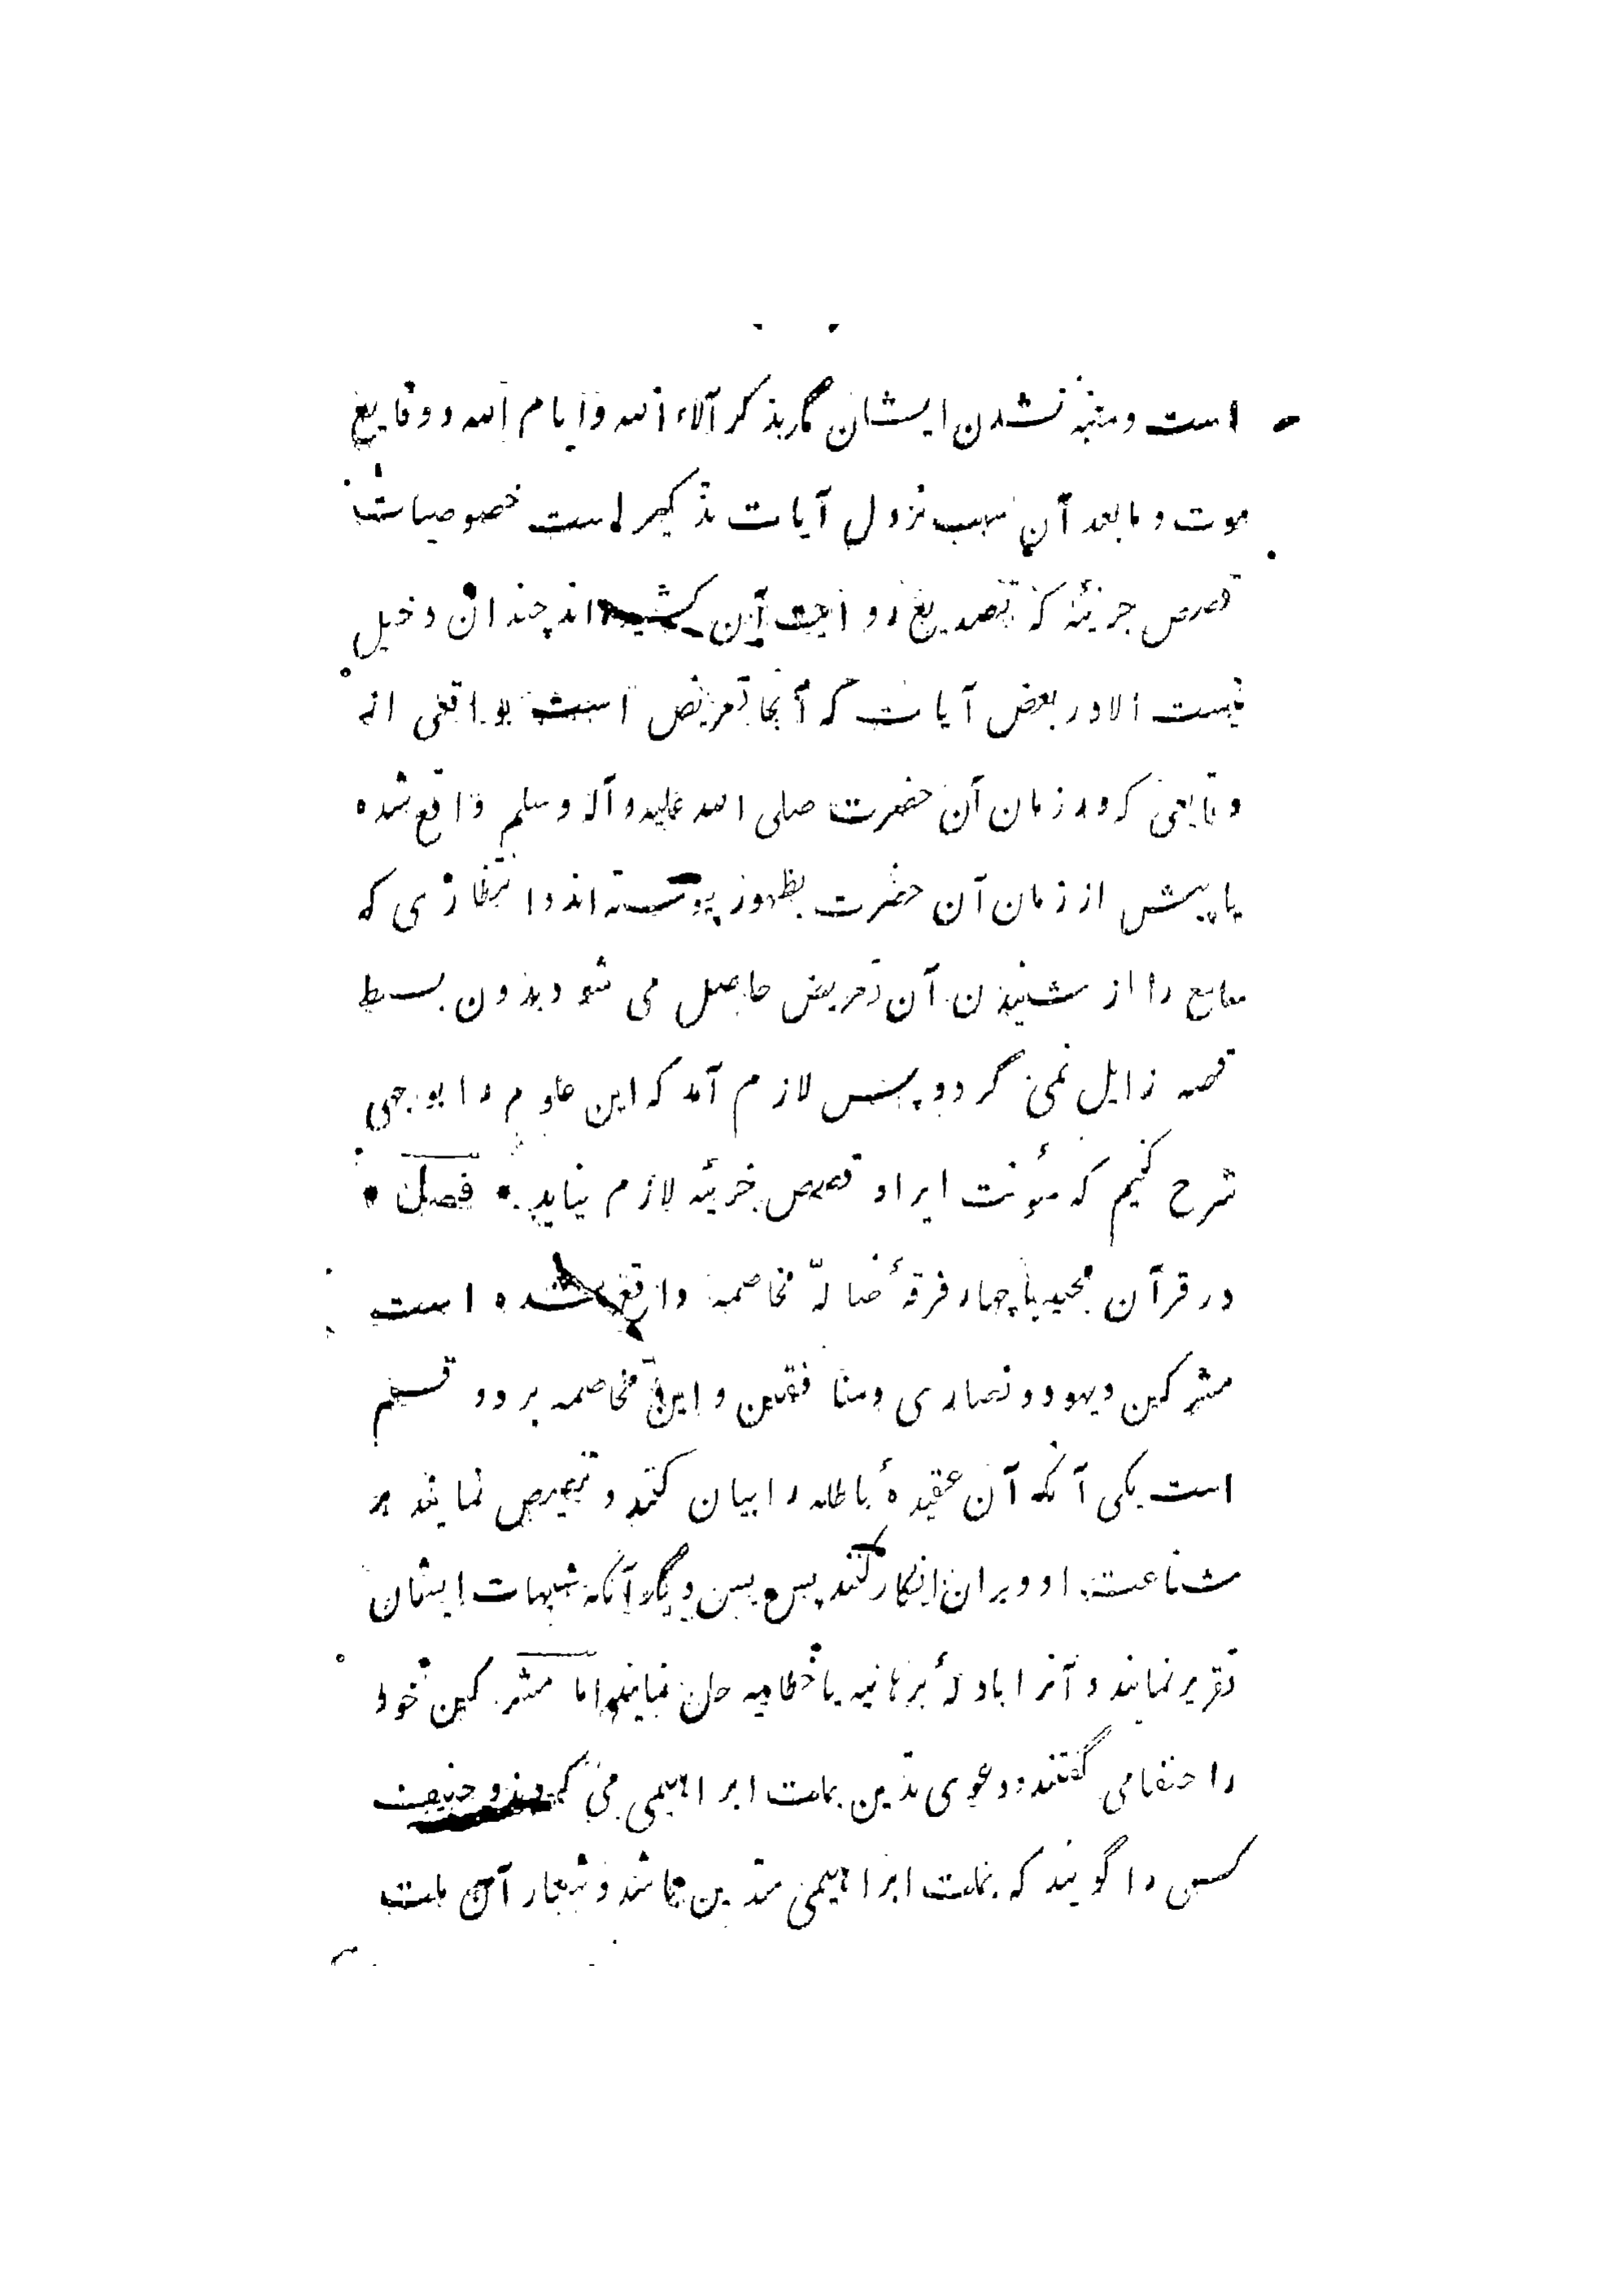 است و متنبه نشدن ایشان مگر بذکر آلاء الله و ایام الله و وقایع
موت و ما بعد آن سبب نزول آیات تذکیر است خصوصیات
قصص جزئیه که تصدیع روایت آن کشیده اند چندان دخیل
نیست الا در بعض آیات که آنجا تعریض است بواقعی از
وقایعی که در زمان آن حضرت صلی الله علیه و آله و سلم واقع شده
یا پیش از زمان آن حضرت بظهور پیوسته اند و انتظاری که
سامع را از شنیدن آن تعریض حاصل می شود بدون بسط
قصه زایل نمی گردد پس لازم آمد که این علوم را بوجهی
شرح کنیم که مؤنت ایراد قصص جزئیه لازم نیاید * فصل *
در قرآن مجید با چهار فرقهٔ ضالّه مخاصمه واقع شده است
مشرکین و یهود و نصاری و منافقین و این مخاصمه بر دو قسم
است یکی آنکه آن عقیدهٔ باطله را بیان کنند و تنصیص نمایند بر
شناعت او و بران انکار کنند پس و بس دیگر آنکه شبهات ایشان
تقریر نمایند و آنرا بادلهٔ برهانیه یا خطابیه حل نمایند اما مشرکین خود
را حنفا می گفتند و دعوی تدین بملت ابراهیمی می کردند و حنیف
کسی را گویند که بملت ابراهیمی متدین باشد و شعار آن ملت